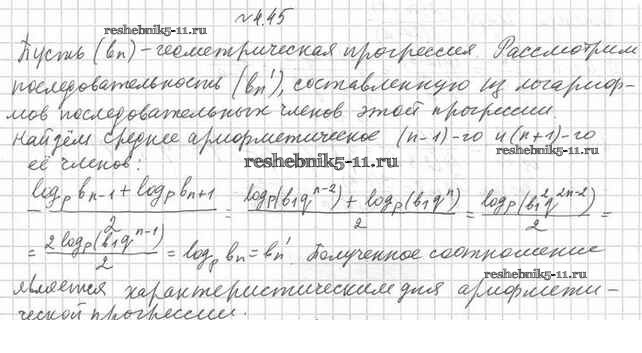 №4.45
reshebnik5-11.ru
Пусть (bn) - геометрическая прогрессия. Рассмотрим
последовательность (bn'), составленную из логариф-
мов последовательных членов этой прогрессии.
Найдём среднее арифметическое (n-1)-го и (n+1)-го
reshebnik5-11.ru
её членов:
reshebnik5-11.ru
(log_p b_{n-1} + log_p b_{n+1})/2 = (log_p(b₁q^{n-2}) + log_p(b₁q^n))/2 = log_p(b₁²q^{2n-2})/2 =
= 2 log_p(b₁q^{n-1})/2 = log_p bn = bn'. Полученное соотношение
reshebnik5-11.ru
является характеристическим для арифмети-
ческой прогрессии.